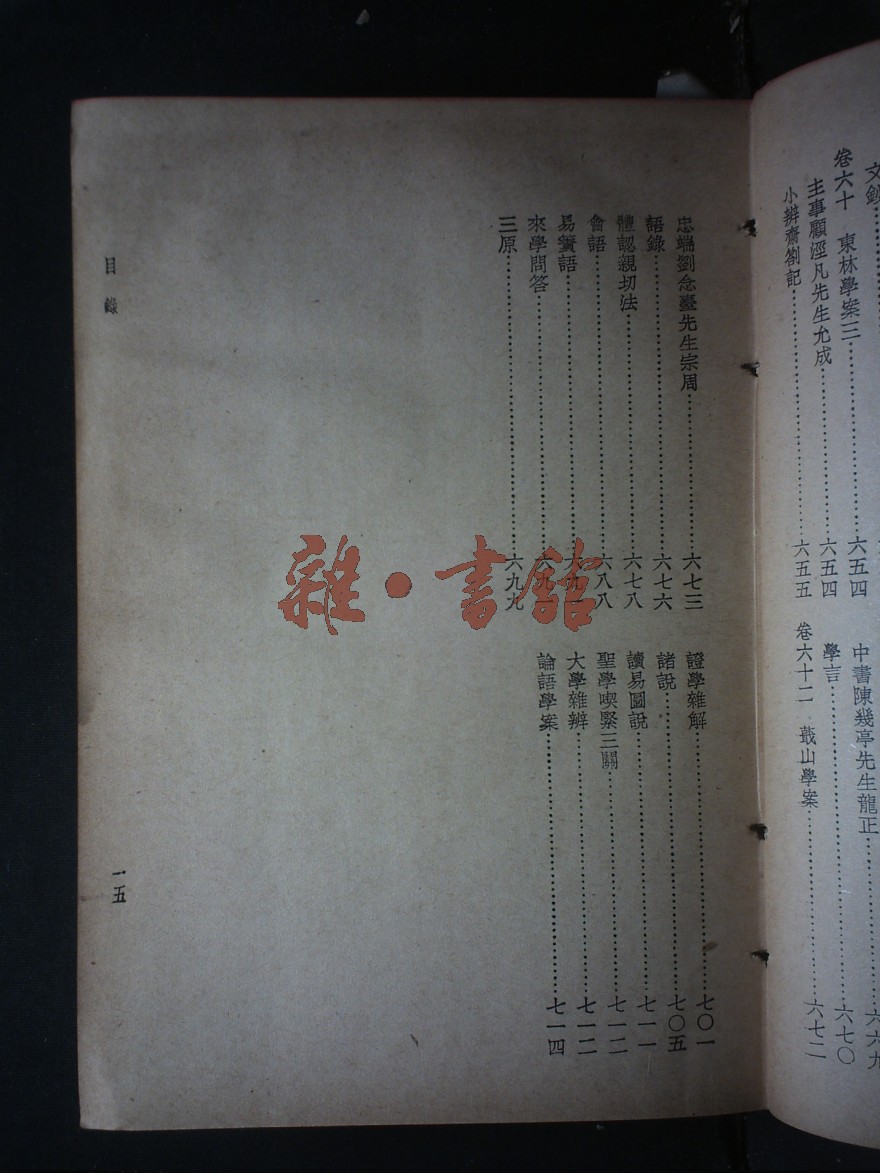 文鈔
卷六十 東林學案三……六五四
主事顧涇凡先生允成……六五四
小辨齋劄記……六五五
中書陳幾亭先生龍正……六六九
學言……六七〇
卷六十二 蕺山學案……六七二
忠端劉念臺先生宗周……六七三
語錄……六七六
體認親切法……六七八
會語……六八八
易簀語
來學問答
三原……六九九
證學雜解……七〇一
諸說……七〇五
讀易圖說……七一一
聖學喫緊三關……七一二
大學雜辨……七一二
論語學案……七一四
目錄
一五
雜·書館